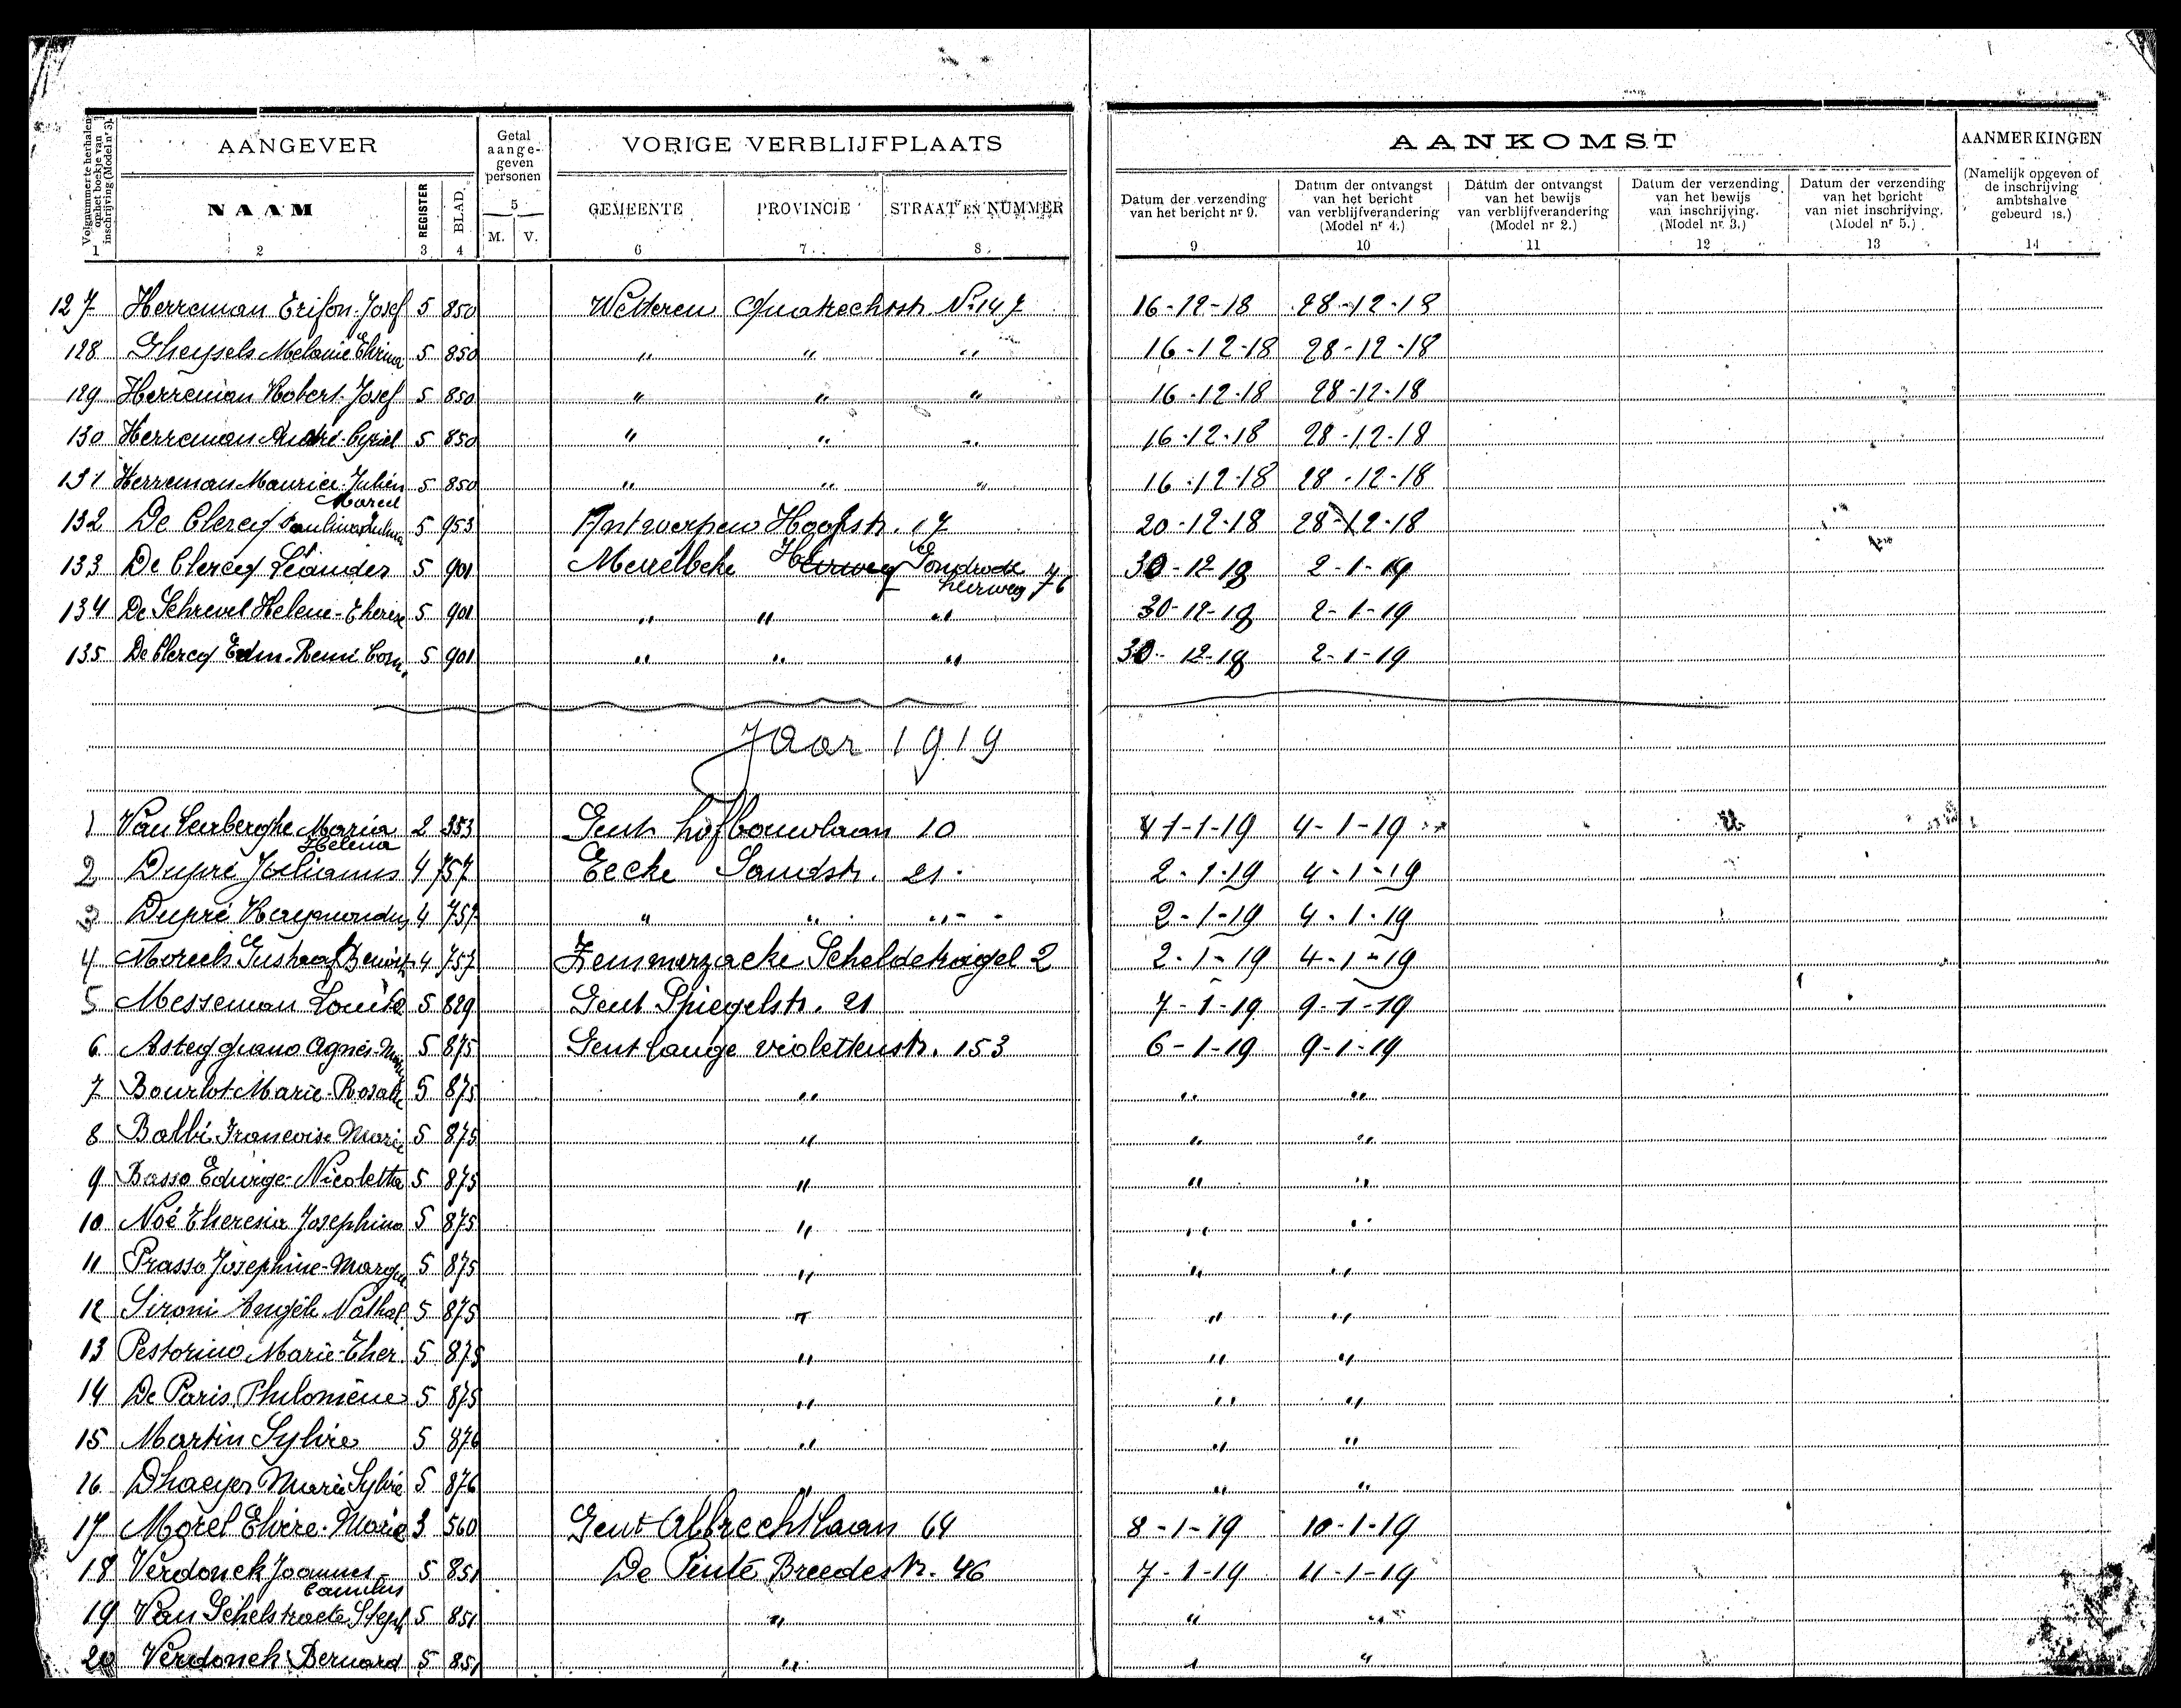 Volgnummer te herhalen op het boekje van inschrijving (Model nr 3).
AANGEVER
Getal aange-geven personen
VORIGE VERBLIJFPLAATS
AANKOMST
AANMERKINGEN
NAAM
REGISTER
BLAD
5
M. V.
GEMEENTE
PROVINCIE
STRAAT EN NUMMER
Datum der verzending van het bericht nr 9.
Datum der ontvangst van het bericht van verblijfverandering (Model nr 4.)
Datum der ontvangst van het bewijs van verblijfverandering (Model nr 2.)
Datum der verzending van het bewijs van inschrijving. (Model nr 3.)
Datum der verzending van het bericht van niet inschrijving. (Model nr 5.)
(Namelijk opgeven of de inschrijving ambtshalve gebeurd is.)
1 2 3 4 6 7 8 9 10 11 12 13 14
127 Herreman Josef 5 850 Wetteren Quatrechtstr. No 147 16-12-18 28-12-18
128 Gheysels Melanie 5 850 " " " 16-12-18 28-12-18
129 Herreman Robert-Josef 5 850 " " " 16-12-18 28-12-18
130 Herreman André-Cyriel 5 850 " " " 16-12-18 28-12-18
131 Herreman Maurice-Julien Marcel 5 850 " " " 16-12-18 28-12-18
132 De Clercq 5 953 Antwerpen Hoogstr. 17 20-12-18 28-12-18
133 De Clercq Leander 5 901 Merelbeke heirweg 30-12-18 2-1-19
134 De Schrevel Helene-Therese 5 901 " " " 30-12-18 2-1-19
135 De Clercq Edm. Remi Corn. 5 901 " " " 30-12-18 2-1-19
Jaar 1919
1 Van Lerberghe Maria Helena 2 353 Gent hofbouwlaan 10 1-1-19 4-1-19
2 Dupré Julianus 4 757 Eecke Landstr. 21 2-1-19 4-1-19
3 Dupré Raymondus 4 757 " " " 2-1-19 4-1-19
4 Moreels Gustaaf Benoit 4 757 Zemmerzacke Scheldekragel 2 2-1-19 4-1-19
5 Messeman Louise 5 829 Gent Spiegelstr. 21 7-1-19 9-1-19
6 Asteggiano Agnes 5 875 Gent lange violettenstr. 153 6-1-19 9-1-19
7 Bourlot Marie-Rosalie 5 875 " " "
8 Balbi Francoise Marie 5 875 " " "
9 Basso Edwige-Nicoletta 5 875 " " "
10 Noé Theresia Josephina 5 875 " " "
11 Prasso Josephine-Margu 5 875 " " "
12 Sironi Angèle Nathal. 5 875 " " "
13 Pestorino Marie-Ther. 5 875 " " "
14 De Paris Philomène 5 875 " " "
15 Martin Sylvie 5 876 " " "
16 Dhaeyer Marie Sylvie 5 876 " " "
17 Morel Elvire-Marie 3 560 Gent Albrechtlaan 64 8-1-19 10-1-19
18 Verdonck Joannes Camillus 5 851 De Pinte Breedestr. 46 7-1-19 11-1-19
19 Van Schelstraete Steph 5 851 " " "
20 Verdonck Bernard 5 851 " " "